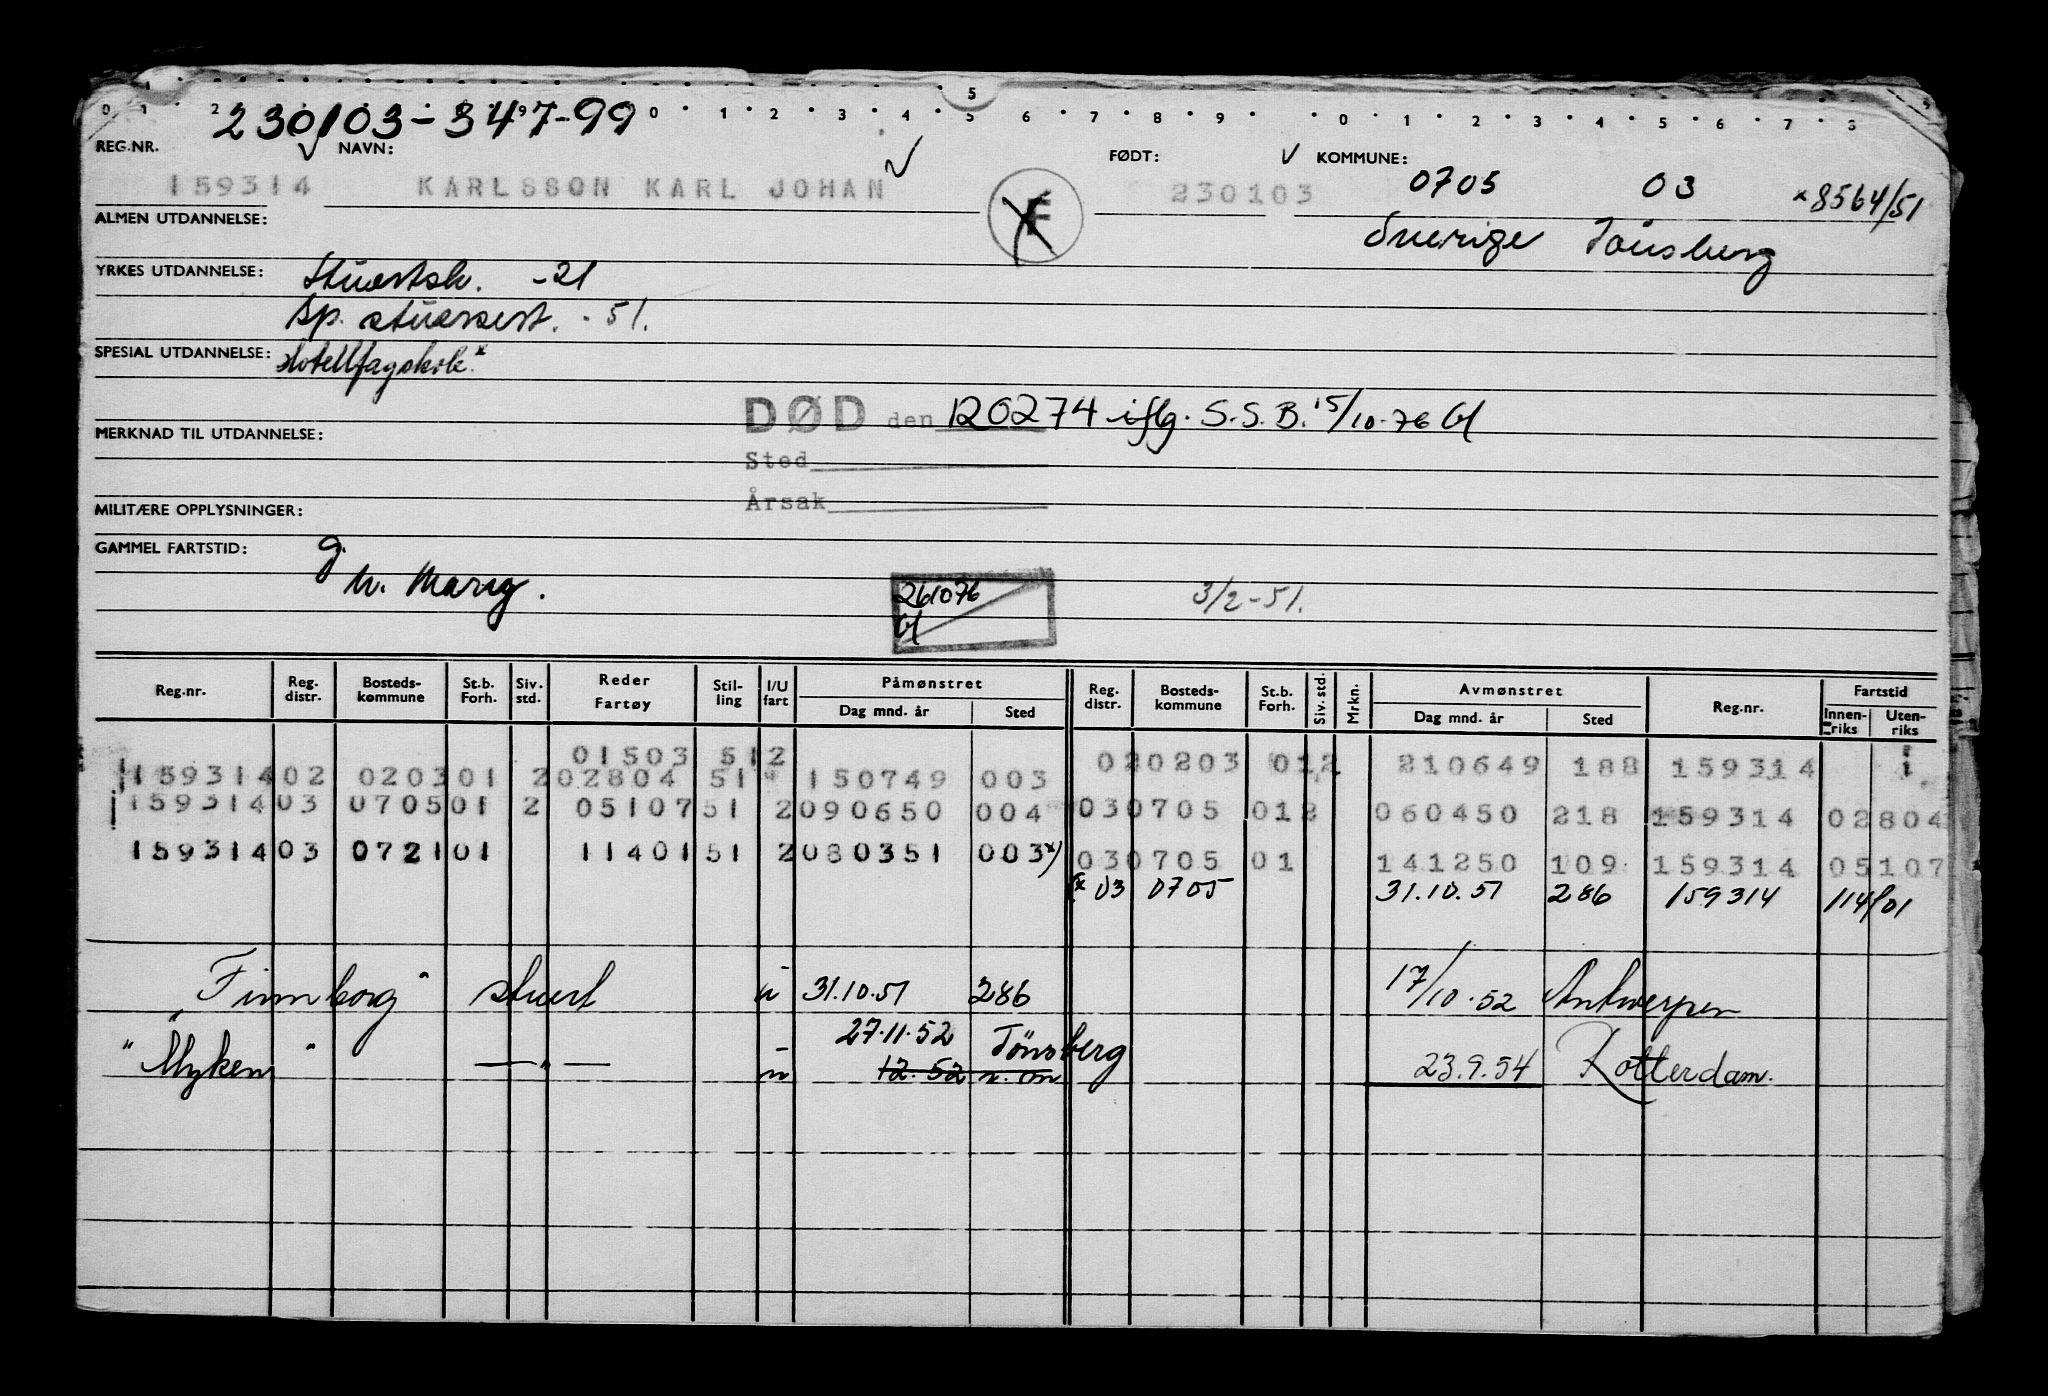 0 1 2 9 0 1 2 3 4 5 6 7 8 9 0 1 2 3 4 5 6 7 8
5
230103-347-99
REG.NR. NAVN: FØDT: KOMMUNE:
159314 KARLSSON KARL JOHAN 230103 0705 03 *8564/51
ALMEN UTDANNELSE: Sverige Tönsberg
YRKES UTDANNELSE: Stuertsk. -21
Sp. stuersert. -51.
SPESIAL UTDANNELSE: Hotellfagskole*
DØD den 120274 iflg. S.S.B. 15/10-76
MERKNAD TIL UTDANNELSE:
Sted
Årsak
MILITÆRE OPPLYSNINGER:
GAMMEL FARTSTID: g.
261076 3/2-51.
Reg.nr. Reg. distr. Bosteds-kommune St.b. Forh. Siv. std. Reder Fartøy Stil-ling I/U fart Påmønstret Dag mnd. år Sted Reg. distr. Bosteds-kommune St.b. Forh. Siv. std. Mrkn. Avmønstret Dag mnd. år Sted Reg.nr. Fartstid Innen-riks Uten-riks
01503 51 2 02 0203 01 2 210649 188 159314
159314 02 0203 01 2 02804 51 150749 003
159314 03 0705 01 2 05107 51 2 090650 004 03 0705 01 2 060450 218 159314 02804
159314 03 0721 01 11401 51 2 080351 003 *) 03 0705 01 141250 109 159314 05107
03 0705 31.10.51 286 159314 114/01
"Finnborg" stuert u 31.10.51 286 17/10.52 Antwerpen
27.11.52 Tönsberg
"Myken" —"— u 12.52 23.9.54 Rotterdam.